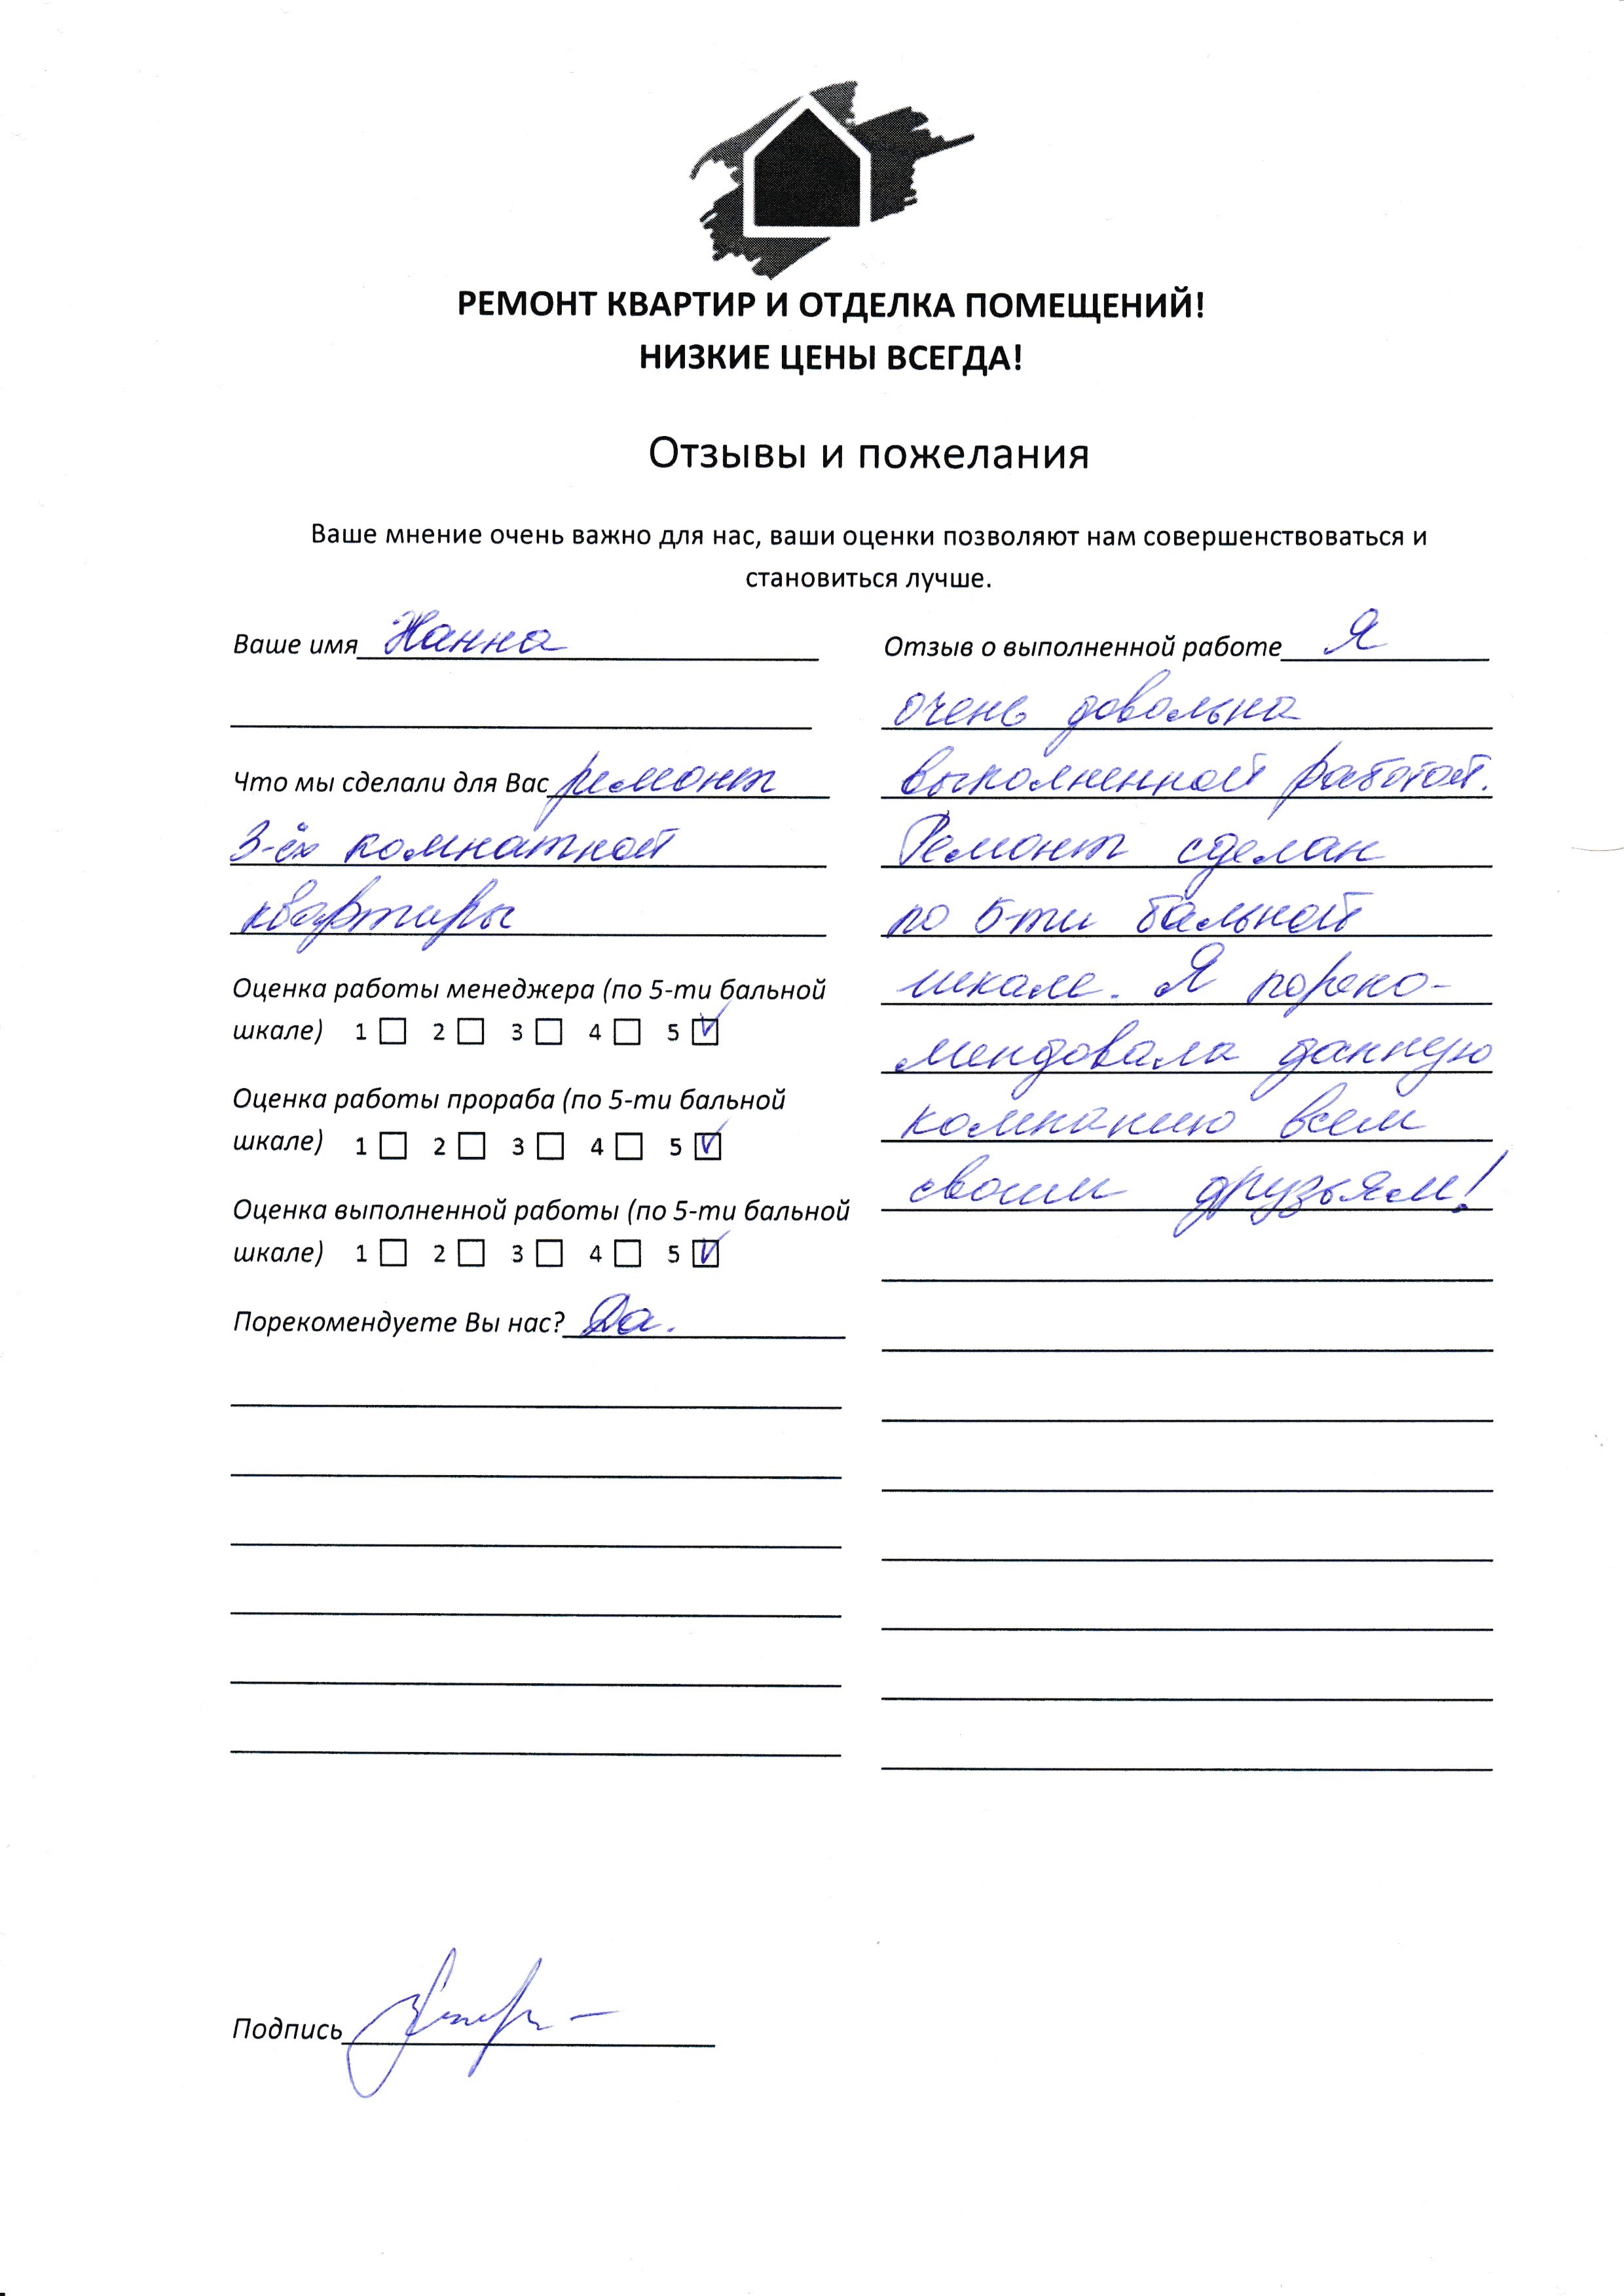 РЕМОНТ КВАРТИР И ОТДЕЛКА ПОМЕЩЕНИЙ!
НИЗКИЕ ЦЕНЫ ВСЕГДА!
Отзывы и пожелания
Ваше мнение очень важно для нас, ваши оценки позволяют нам совершенствоваться и
становиться лучше.
Ваше имя Жанна
Что мы сделали для Вас ремонт
3-ёх комнатной
квартиры
Оценка работы менеджера (по 5-ти бальной
шкале) 1 2 3 4 5
Оценка работы прораба (по 5-ти бальной
шкале) 1 2 3 4 5
Оценка выполненной работы (по 5-ти бальной
шкале) 1 2 3 4 5
Порекомендуете Вы нас? Да.
Отзыв о выполненной работе Я
очень довольна
выполненной работой.
Ремонт сделан
по 5-ти бальной
шкале. Я пореко-
мендовала данную
компанию всем
своим друзьям!
Подпись